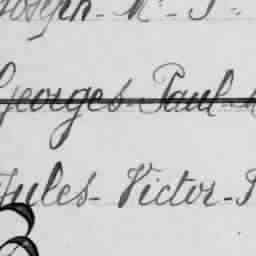 Joseph - M
Georges - Paul -
Jules - Victor -